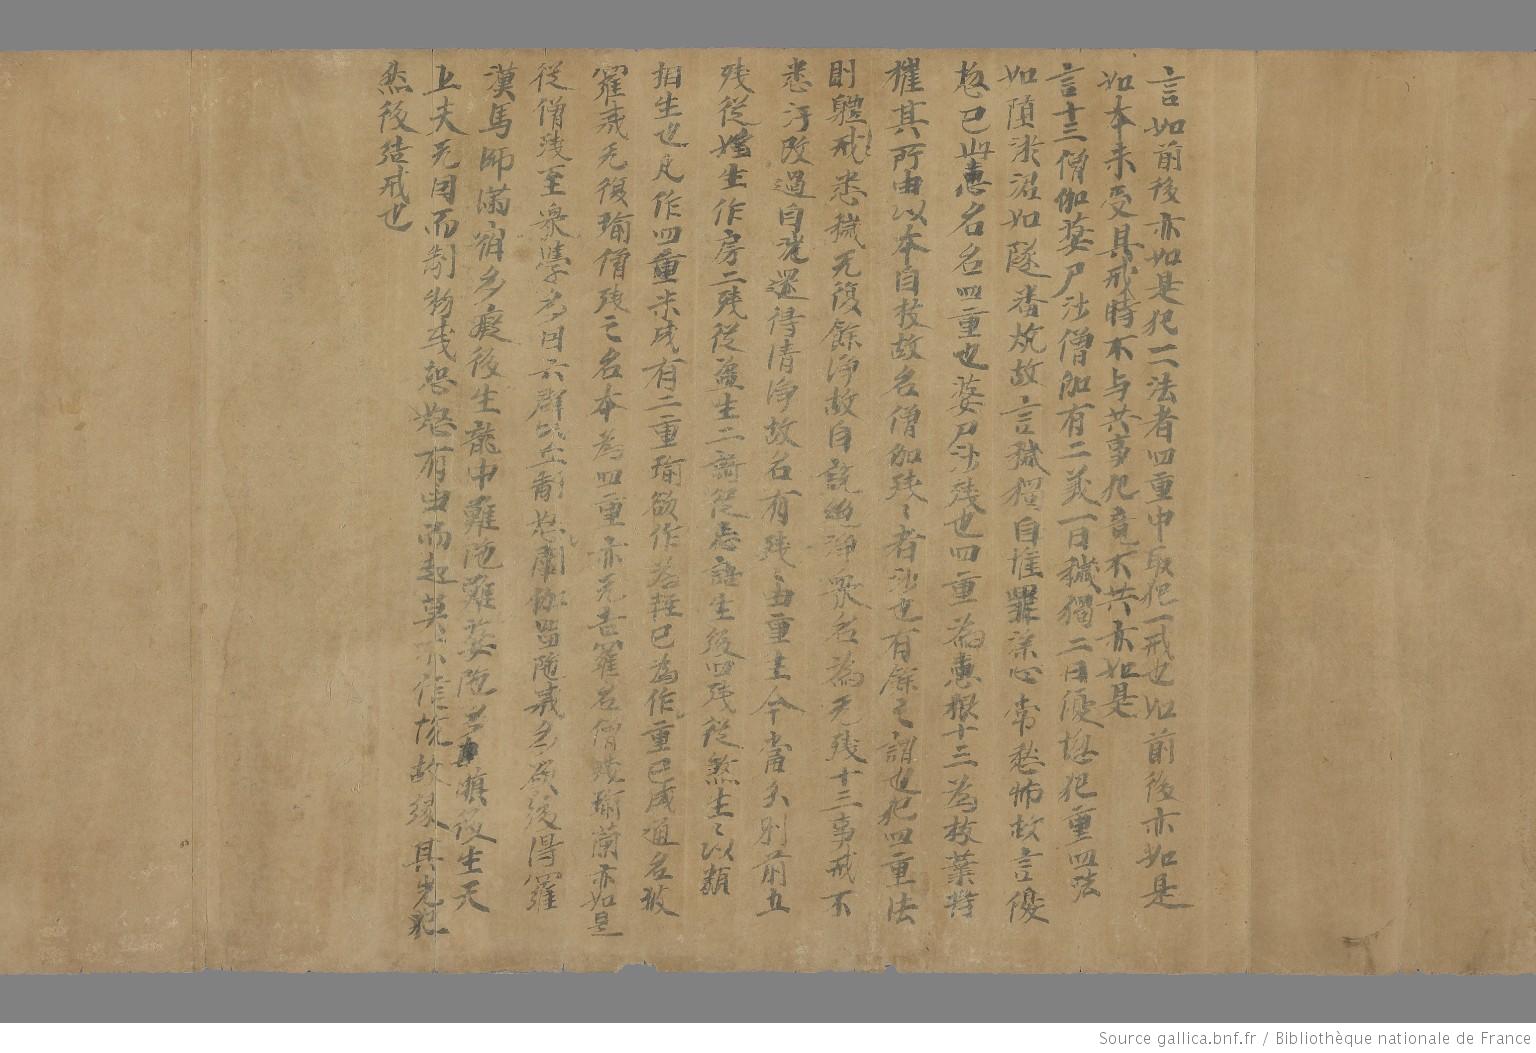 言如前後亦如是犯一二法者四重中取犯一戒也如前後亦如是
如本未受具戒時不与共事犯竟不共亦如是
言十三僧伽婆尸沙僧伽有二義一曰穢獨二曰優惱犯重四法
如墮淤沼如隧番炕故言穢獨自惟罪染心常愁怖故言優
惱已此惠名名四重也婆尸沙殘也四重為惠根十三為枝葉特
摧其所由以本自枝故名僧伽殘〻者沙也有餘之謂也犯四重法
則體戒悉穢无復餘淨故自説絶淨衆名為无殘十三事戒不
悉汙改過自洗還得清淨故名有殘由重生今當久别前五
殘從婬生作房二殘從盗生二謗從忘語生後四殘從煞生〻以類
相生也凡作四重未成有二重瑜欲作若輕已為作重已成通名彼
罪或无復瑜僧殘之名本為四重亦无吉羅名僧殘瑜蘭亦如是
從僧殘至衆學多因六群比丘制悠蘭伽留隨義多為後得羅
漢馬師滿宿多癡後生龍中難陁難婆陁多瞋後生天
上夫无因而制物或怨怒有由而起莫不作恠故缘具先犯
然後结戒也
Source gallica.bnf.fr / Bibliothèque nationale de France